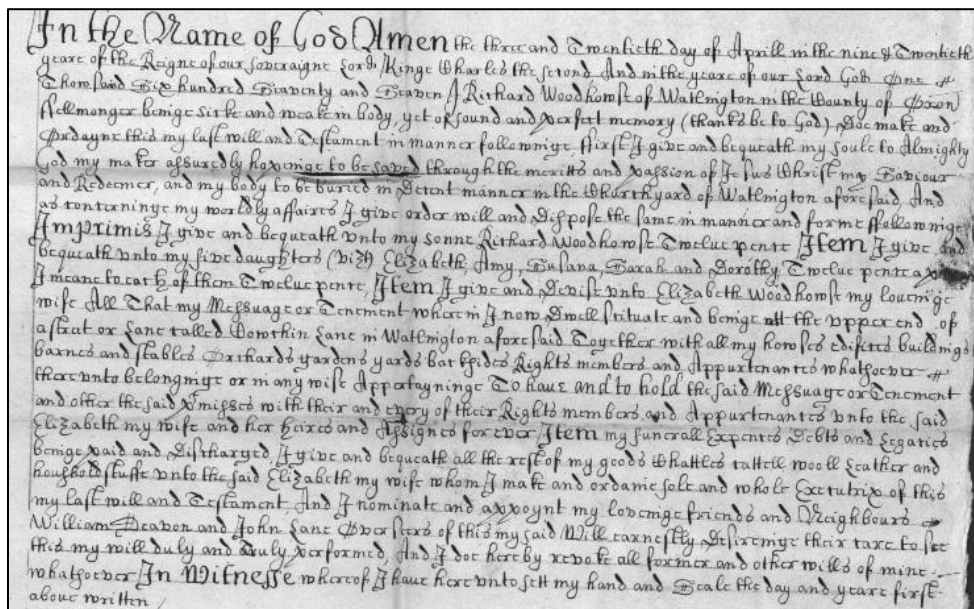 In the Name of God Amen the three and Twentieth day of Aprill in the nine & Twentieth
yeare of the Reigne of our soveraigne Lord Kinge Charles the second And in the yeare of our Lord God One
Thousand Six hundred Seaventy and Seaven I Richard Woodhowse of Watlington in the County of Oxon
ffellmonger beinge sicke and weake in body, yet of sound and perfect memory (thanks be to God) Doe make and
Ordayne this my last will and Testament in manner followinge ffirst I give and bequeath my soule to Almighty
God my maker assuredly hopeinge to be saved through the meritts and passion of Jesus Christ my Saviour
and Redeemer, and my body to be buried in Decent manner in the Churchyard of Watlington aforesaid And
as concerninge my worldly affaires I give order will and Dispose the same in manner and forme ffollowinge
Imprimis I give and bequeath vnto my sonne Richard Woodhowse Twelve pence Item I give and
bequeath vnto my five daughters (vizt) Elizabeth, Amy, Susana, Sarah and Dorothy Twelve pence
I meane to each of them Twelve pence, Item I give and Devise vnto Elizabeth Woodhowse my loveinge
wife All That my Messuage or Tenement wherein I now Dwell scituate and beinge att the vpper end of
a streat or Lane called Lane in Watlington aforesaid Together with all my howses edifices buildings
barnes and stables Orchards gardens yards backsides Rights members and Appurtenances whatsoever
there vnto belonginge or in any wise Appertayninge To have and to hold the said Messuage or Tenement
and other the said p'misses with their and every of their Rights members and Appurtenances vnto the said
Elizabeth my wife and her heires and Assignes forever Item my funerall Expences Debts and Legacies
beinge paid and Discharged, I give and bequeath all the rest of my goods Chattles cattell wooll Leather and
houshold stuffe vnto the said Elizabeth my wife whom I make and ordaine sole and whole Executrix of this
my last will and Testament, And I nominate and appoynt my loveinge friends and Neighbours
William and John Lane Overseers of this my said Will earnestly Desireinge their care to see
this my will duly and Truly performed, And I doe hereby revoke all former and other wills of mine
whatsoever In Witnesse whereof I have here vnto sett my hand and Seale the day and yeare first
above written